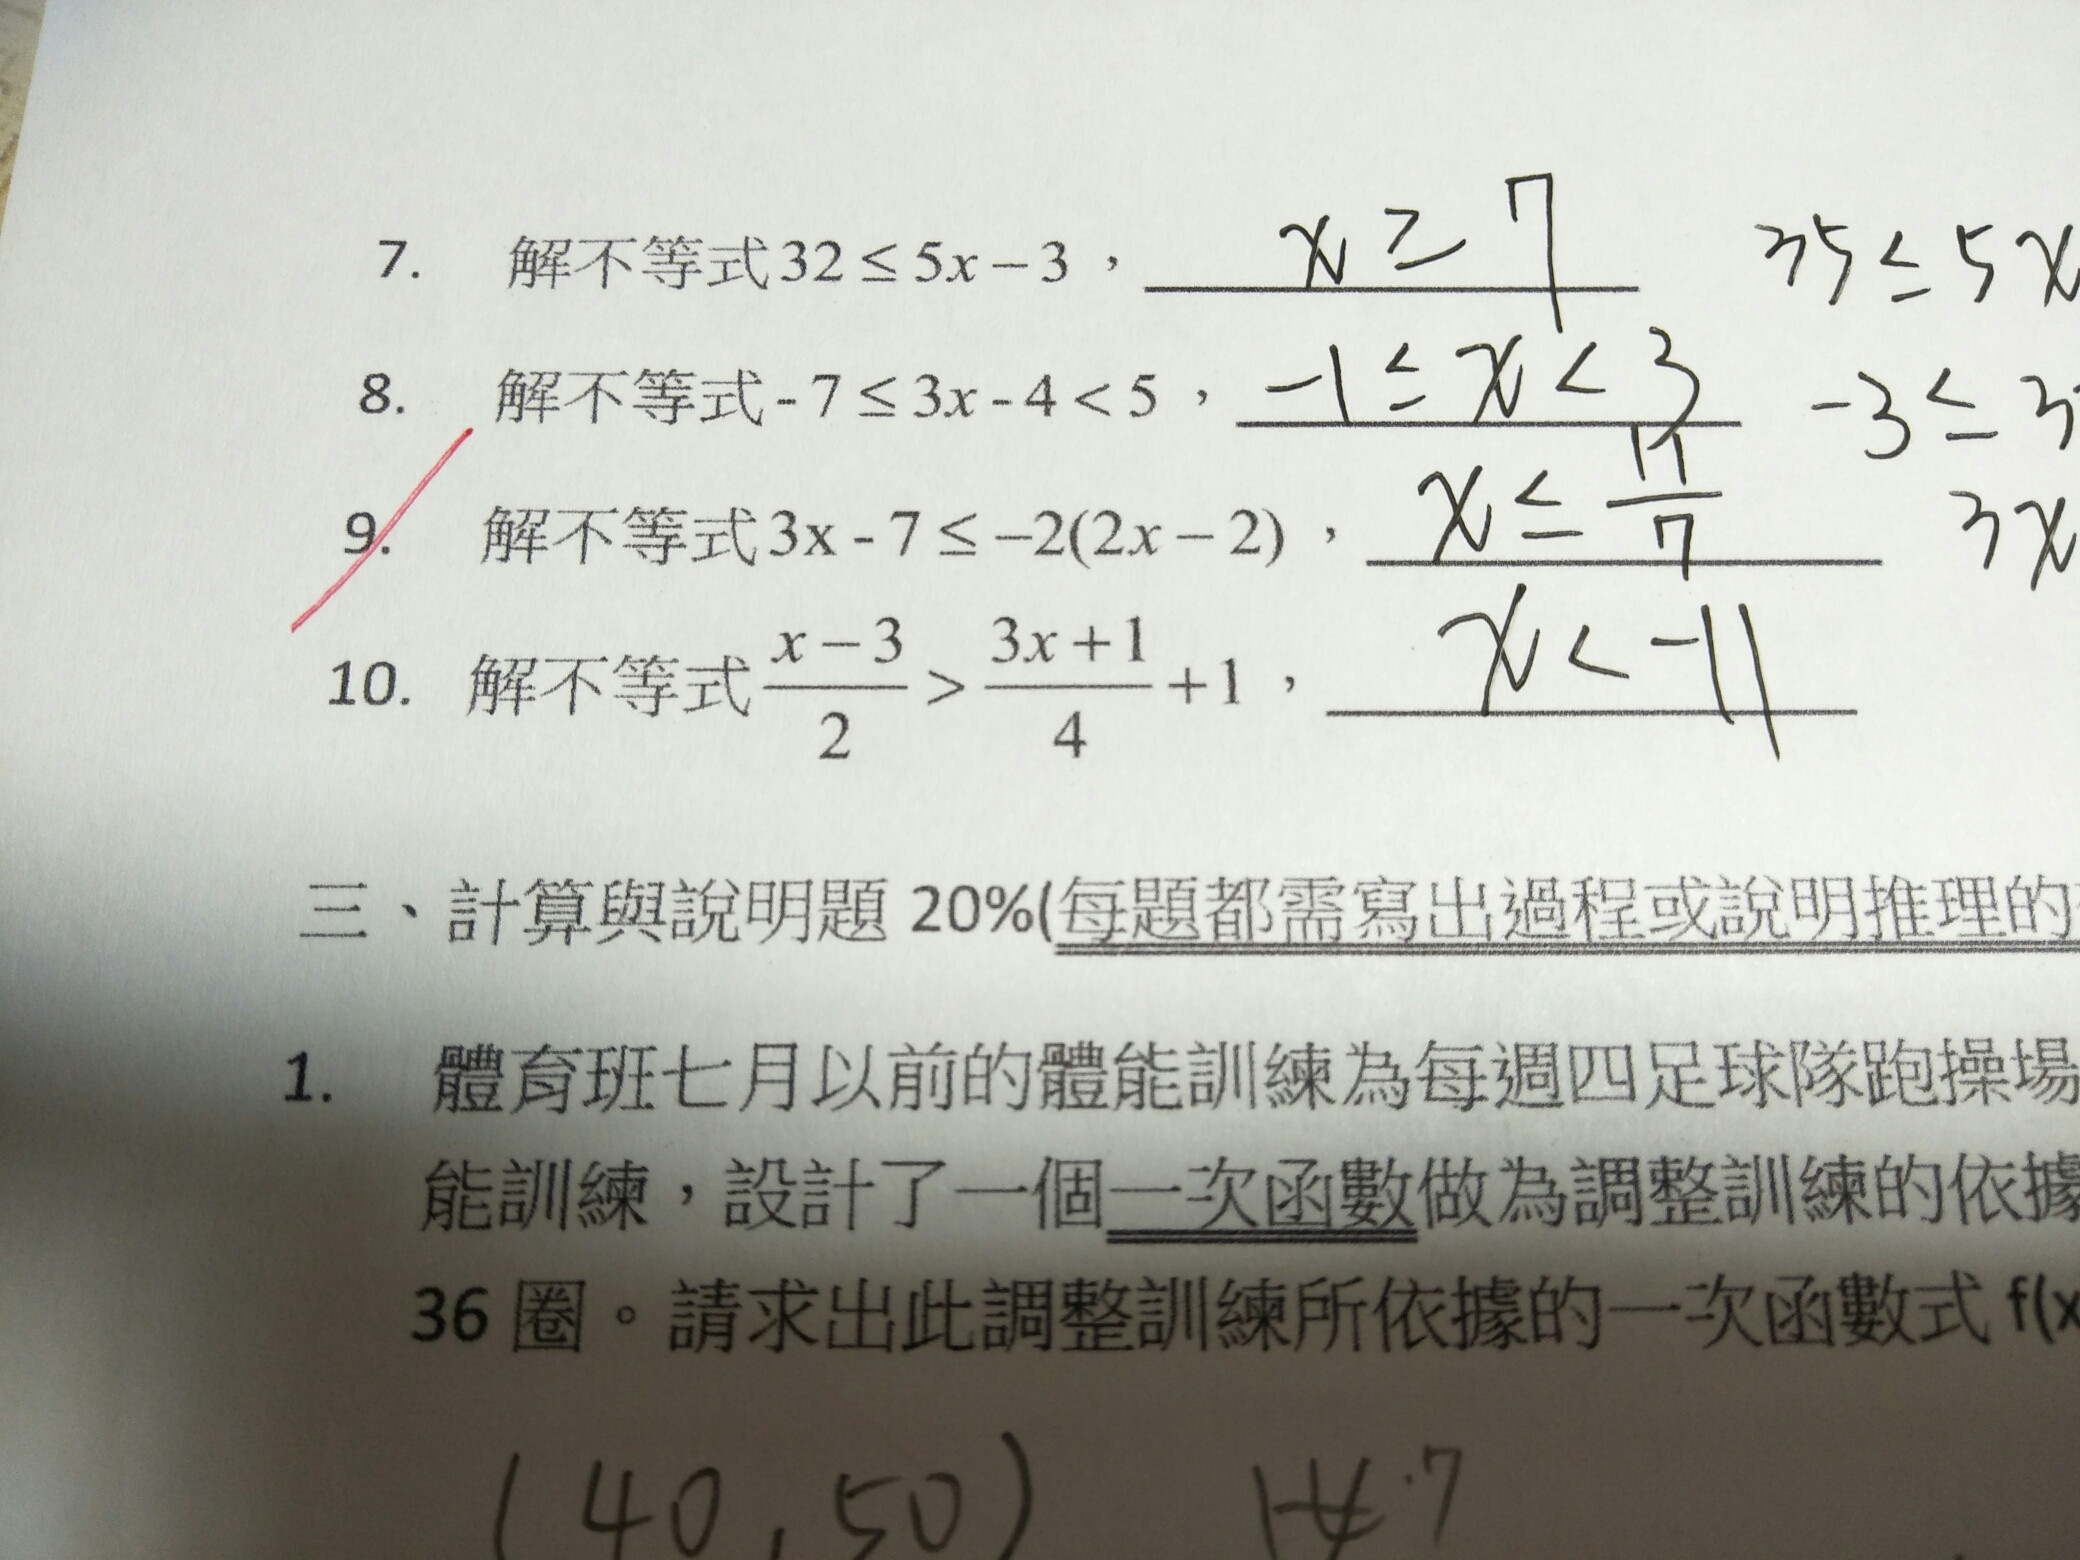 7. 解不等式 32 ≤ 5x − 3， x ≥ 7 35 ≤ 5x
8. 解不等式 - 7 ≤ 3x - 4 < 5， -1 ≤ x < 3 -3 ≤ 3
9. 解不等式 3x - 7 ≤ −2(2x − 2)， x ≤ 11/7 3x
10. 解不等式 (x − 3)/2 > (3x + 1)/4 + 1， x < -11
三、計算與說明題 20%(每題都需寫出過程或說明推理的
1. 體育班七月以前的體能訓練為每週四足球隊跑操場
能訓練，設計了一個一次函數做為調整訓練的依據
36 圈。請求出此調整訓練所依據的一次函數式 f(x
(40,50)